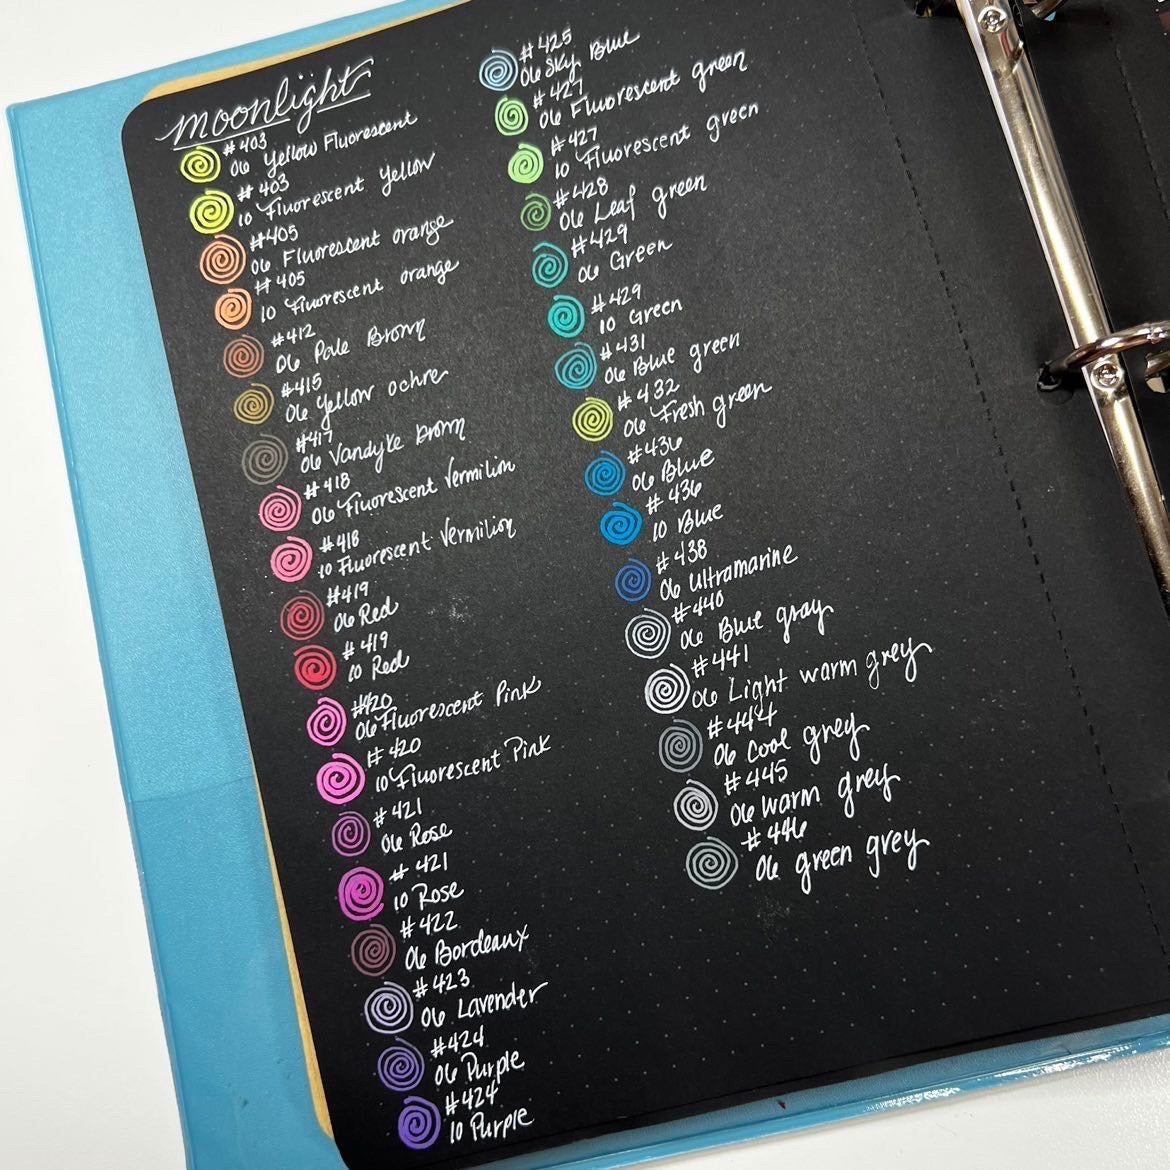 moonlight
#403
06 Yellow Fluorescent
#403
10 Fluorescent Yellow
#405
06 Fluorescent orange
#405
10 Fluorescent orange
#412
06 Pale Brown
#415
06 Yellow ochre
#417
06 Vandyke brown
#418
06 Fluorescent Vermilion
#418
10 Fluorescent Vermilion
#419
06 Red
#419
10 Red
#420
06 Fluorescent Pink
#420
10 Fluorescent Pink
#421
06 Rose
#421
10 Rose
#422
06 Bordeaux
#423
06 Lavender
#424
06 Purple
#424
10 Purple
#425
06 Sky Blue
#427
06 Fluorescent green
#427
10 Fluorescent green
#428
06 Leaf green
#429
06 Green
#429
10 Green
#431
06 Blue green
#432
06 Fresh green
#436
06 Blue
#436
10 Blue
#438
06 Ultramarine
#440
06 Blue gray
#441
06 Light warm grey
#444
06 Cool grey
#445
06 warm grey
#446
06 green grey